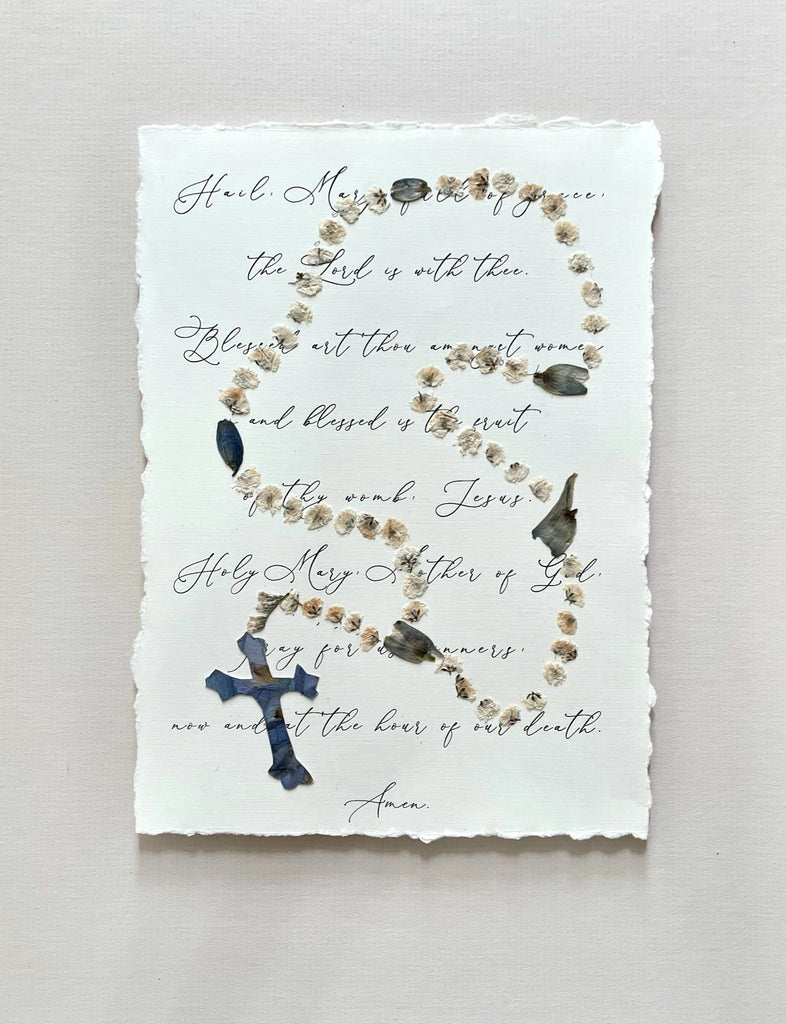 Hail, Mary, full of grace,
the Lord is with thee.
Blessed art thou amongst women
and blessed is the fruit
of thy womb, Jesus.
Holy Mary, Mother of God,
pray for us sinners,
now and at the hour of our death.
Amen.